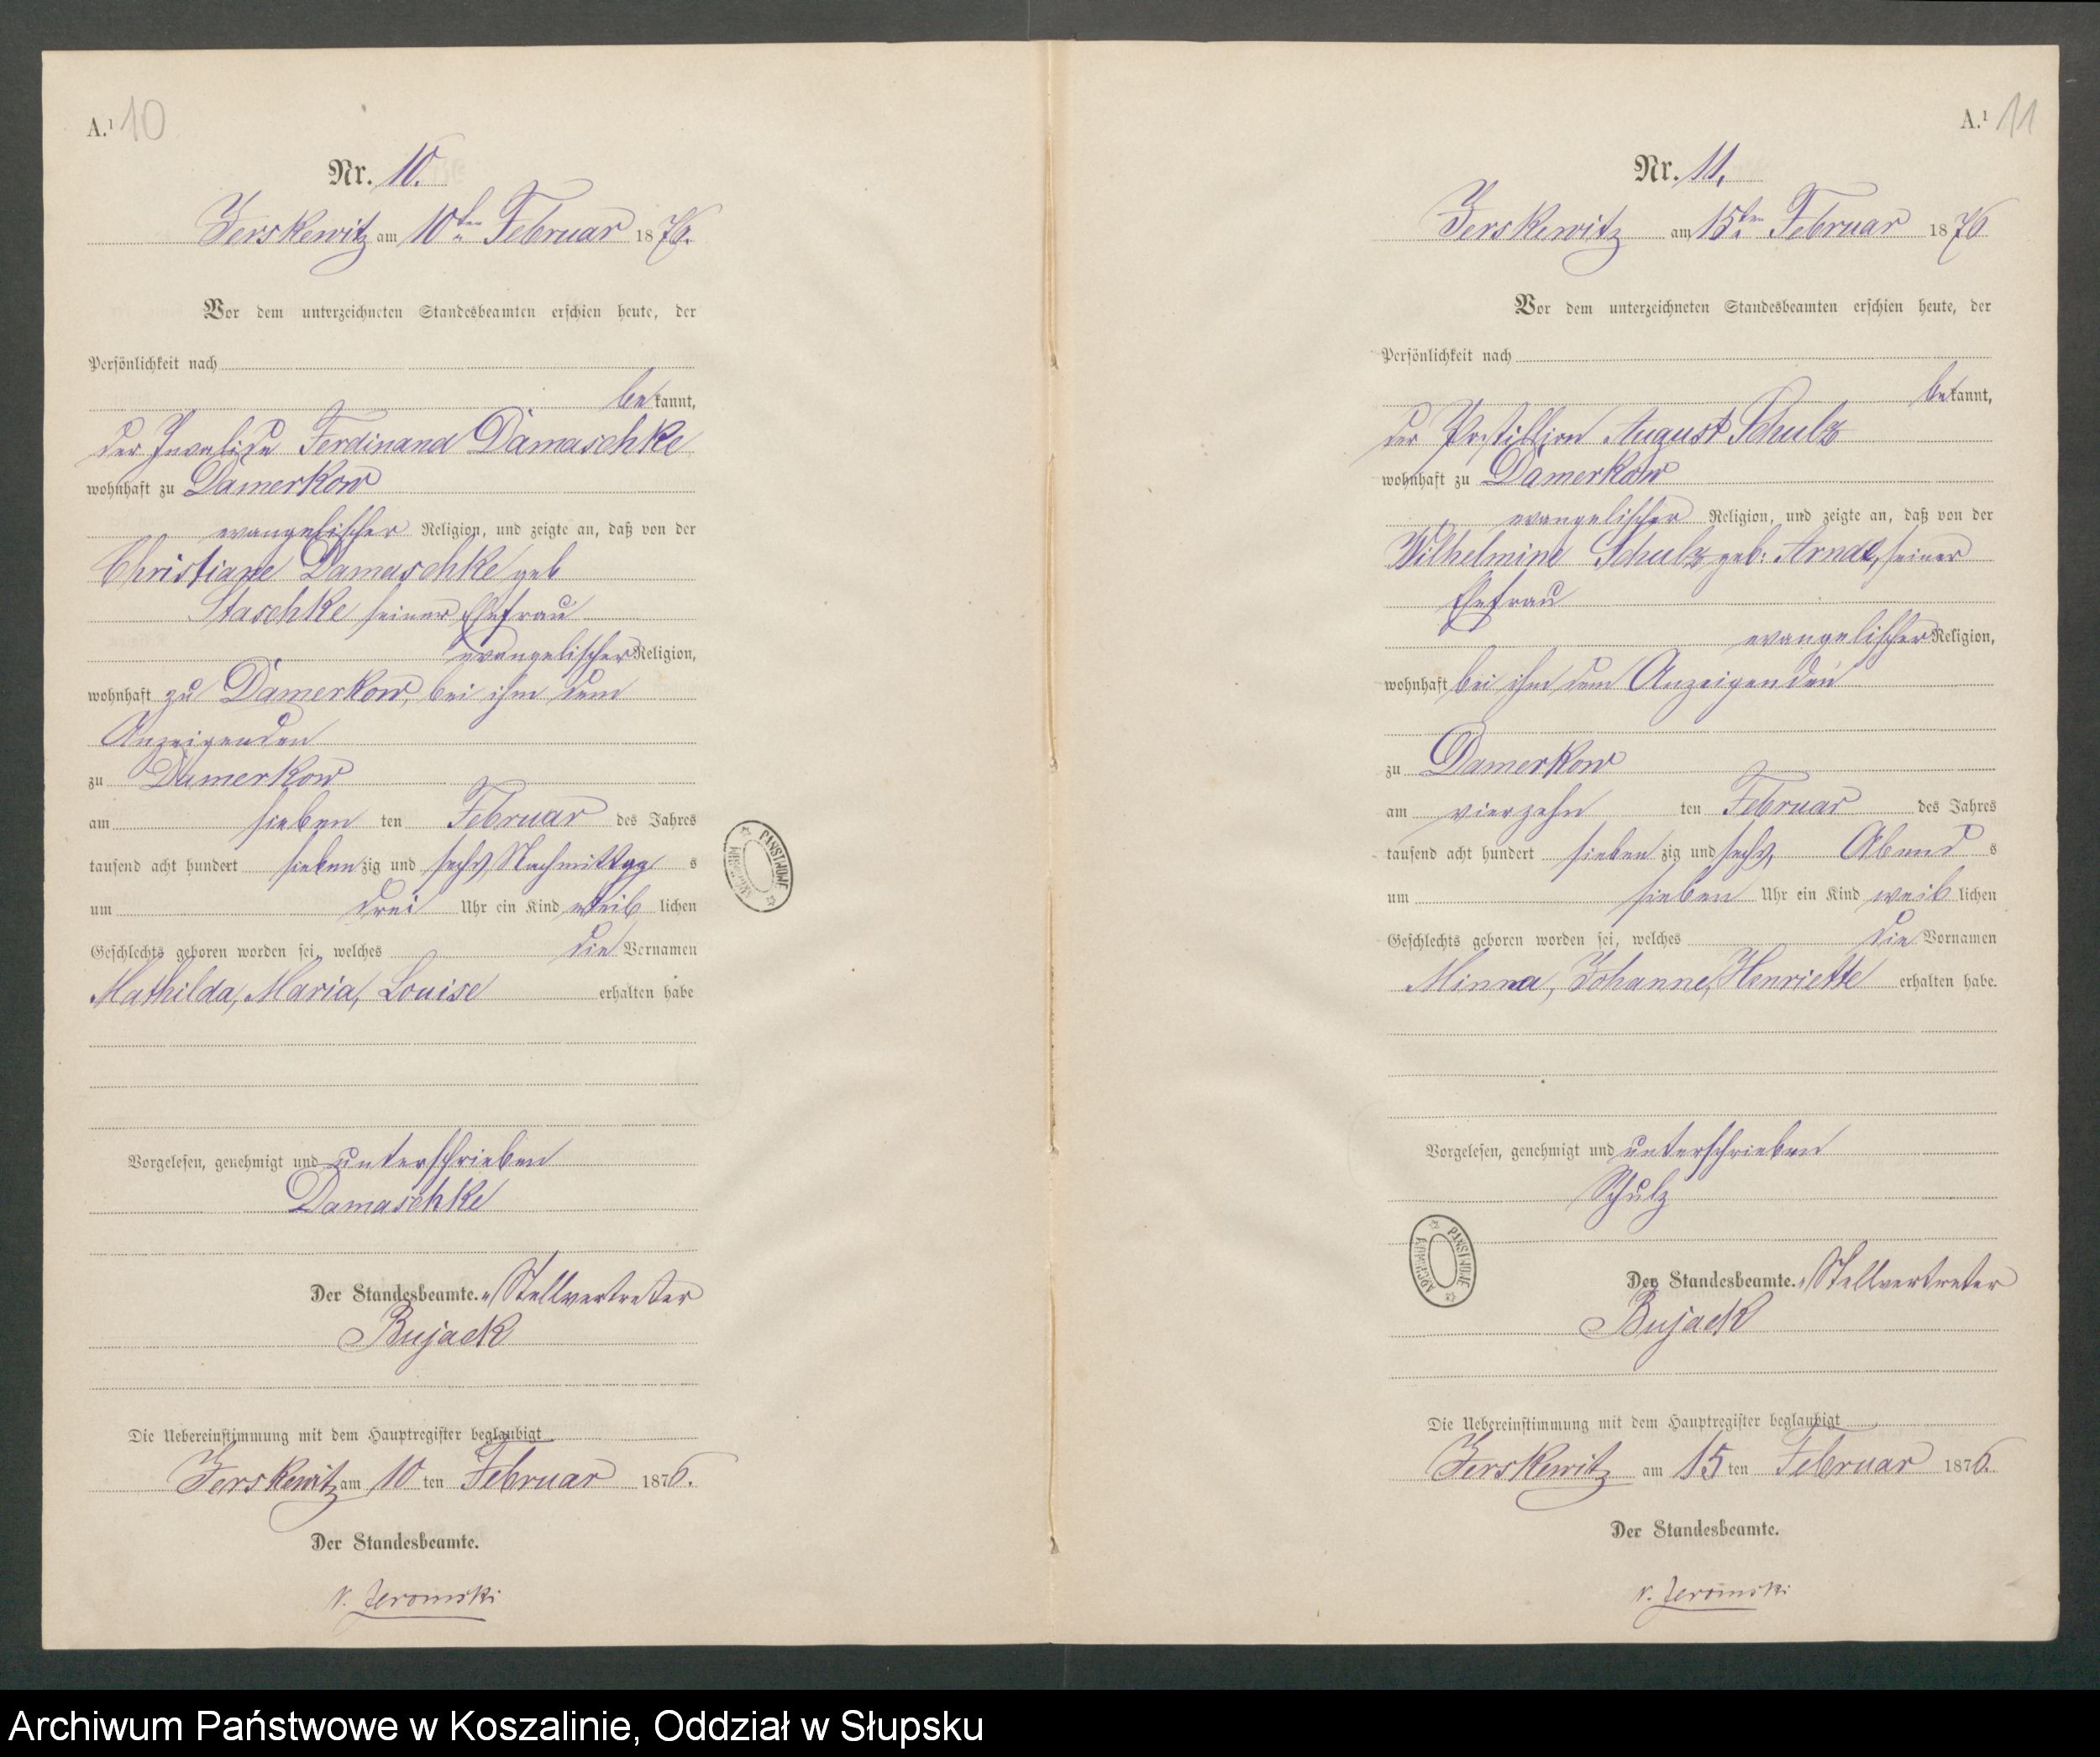 A.¹ 10
Nr. 10.
Jerskewitz am 10ten Februar 1876.
Vor dem unterzeichneten Standesbeamten erschien heute, der
Persönlichkeit nach
bekannt,
der Invalide Ferdinand Damaschke
wohnhaft zu Damerkow
evangelischer Religion, und zeigte an, daß von der
Christiane Damaschke geb
Staschke seiner Ehefrau
evangelischer Religion,
wohnhaft zu Damerkow, bei ihm dem
Anzeigenden
zu Damerkow
am sieben ten Februar des Jahres
tausend acht hundert siebenzig und sechs Nachmittag s
um drei Uhr ein Kind weiblichen
Geschlechts geboren worden sei, welches die Vornamen
Mathilda, Maria, Louise erhalten habe
Vorgelesen, genehmigt und unterschrieben
Damaschke
Der Standesbeamte. Stellvertreter
Bujack
Die Uebereinstimmung mit dem Hauptregister beglaubigt
Jerskewitz am 10 ten Februar 1876.
Der Standesbeamte.
v. Jeromski
A.¹ 11
Nr. 11.
Jerskewitz am 15ten Februar 1876
Vor dem unterzeichneten Standesbeamten erschien heute, der
Persönlichkeit nach
bekannt,
der Postillion August Schulz
wohnhaft zu Damerkow
evangelischer Religion, und zeigte an, daß von der
Wilhelmine Schulz geb. Arndt, seiner
Ehefrau
evangelischer Religion,
wohnhaft bei ihm dem Anzeigenden
zu Damerkow
am vierzehn ten Februar des Jahres
tausend acht hundert siebenzig und sechs, Abend s
um sieben Uhr ein Kind weiblichen
Geschlechts geboren worden sei, welches die Vornamen
Minna, Johanne, Henriette erhalten habe.
Vorgelesen, genehmigt und unterschrieben
Schulz
Der Standesbeamte. Stellvertreter
Bujack
Die Uebereinstimmung mit dem Hauptregister beglaubigt
Jerskewitz am 15 ten Februar 1876.
Der Standesbeamte.
v. Jeromski
Archiwum Państwowe w Koszalinie, Oddział w Słupsku